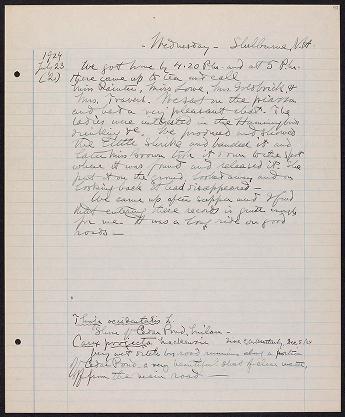 Wednesday - Shelburne, N.H.
1924
July 23
(2)
We got home by 4.20 P.M. and at 5 P.M.
there came up to tea and call
Miss Lowe, Mrs. &
Mrs. We sat on the piazza
and had a very pleasant chat. The
ladies were interested in the Hummingbirds
drinking &c. We produced and showed
the little and banded it and
later Miss Brown took it down to the spot
where it was found and released it. She
put it on the ground, looked away, and on
looking back it had disappeared -
We came up after supper and I find
that entering these records is quite enough
for me. It was a long ride on good
roads -
Thuja occidentalis L.
Shore of Cedar Pond, Milan -
Carex projecta Mackenzie
very wet ditch by road running along a portion
of Cedar Pond, a very beautiful sheet of clear water,
off from the main road -